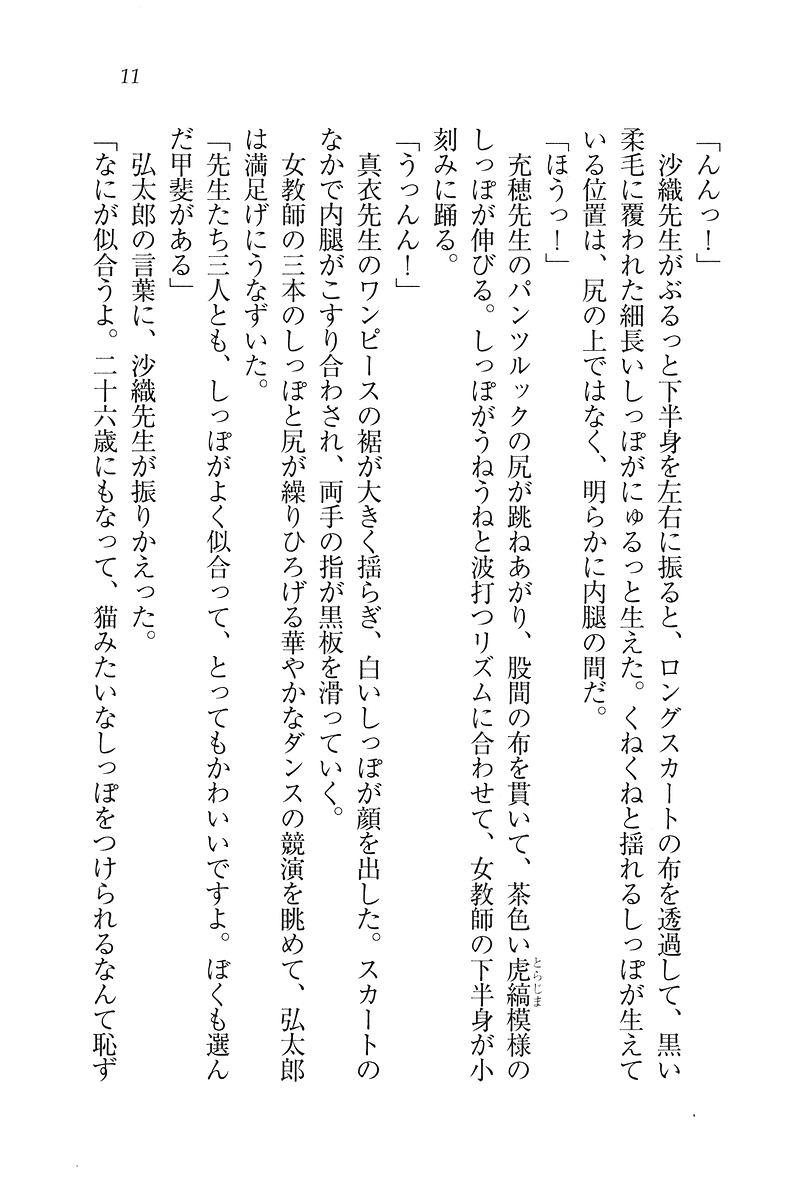 11
「んんっ！」
　沙織先生がぶるっと下半身を左右に振ると、ロングスカートの布を透過して、黒い
柔毛に覆われた細長いしっぽがにゅるっと生えた。くねくねと揺れるしっぽが生えて
いる位置は、尻の上ではなく、明らかに内腿の間だ。
「ほうっ！」
　充穂先生のパンツルックの尻が跳ねあがり、股間の布を貫いて、茶色い虎縞模様の
とらじま
しっぽが伸びる。しっぽがうねうねと波打つリズムに合わせて、女教師の下半身が小
刻みに踊る。
「うっんん！」
　真衣先生のワンピースの裾が大きく揺らぎ、白いしっぽが顔を出した。スカートの
なかで内腿がこすり合わされ、両手の指が黒板を滑っていく。
　女教師の三本のしっぽと尻が繰りひろげる華やかなダンスの競演を眺めて、弘太郎
は満足げにうなずいた。
「先生たち三人とも、しっぽがよく似合って、とってもかわいいですよ。ぼくも選ん
だ甲斐がある」
　弘太郎の言葉に、沙織先生が振りかえった。
「なにが似合うよ。二十六歳にもなって、猫みたいなしっぽをつけられるなんて恥ず